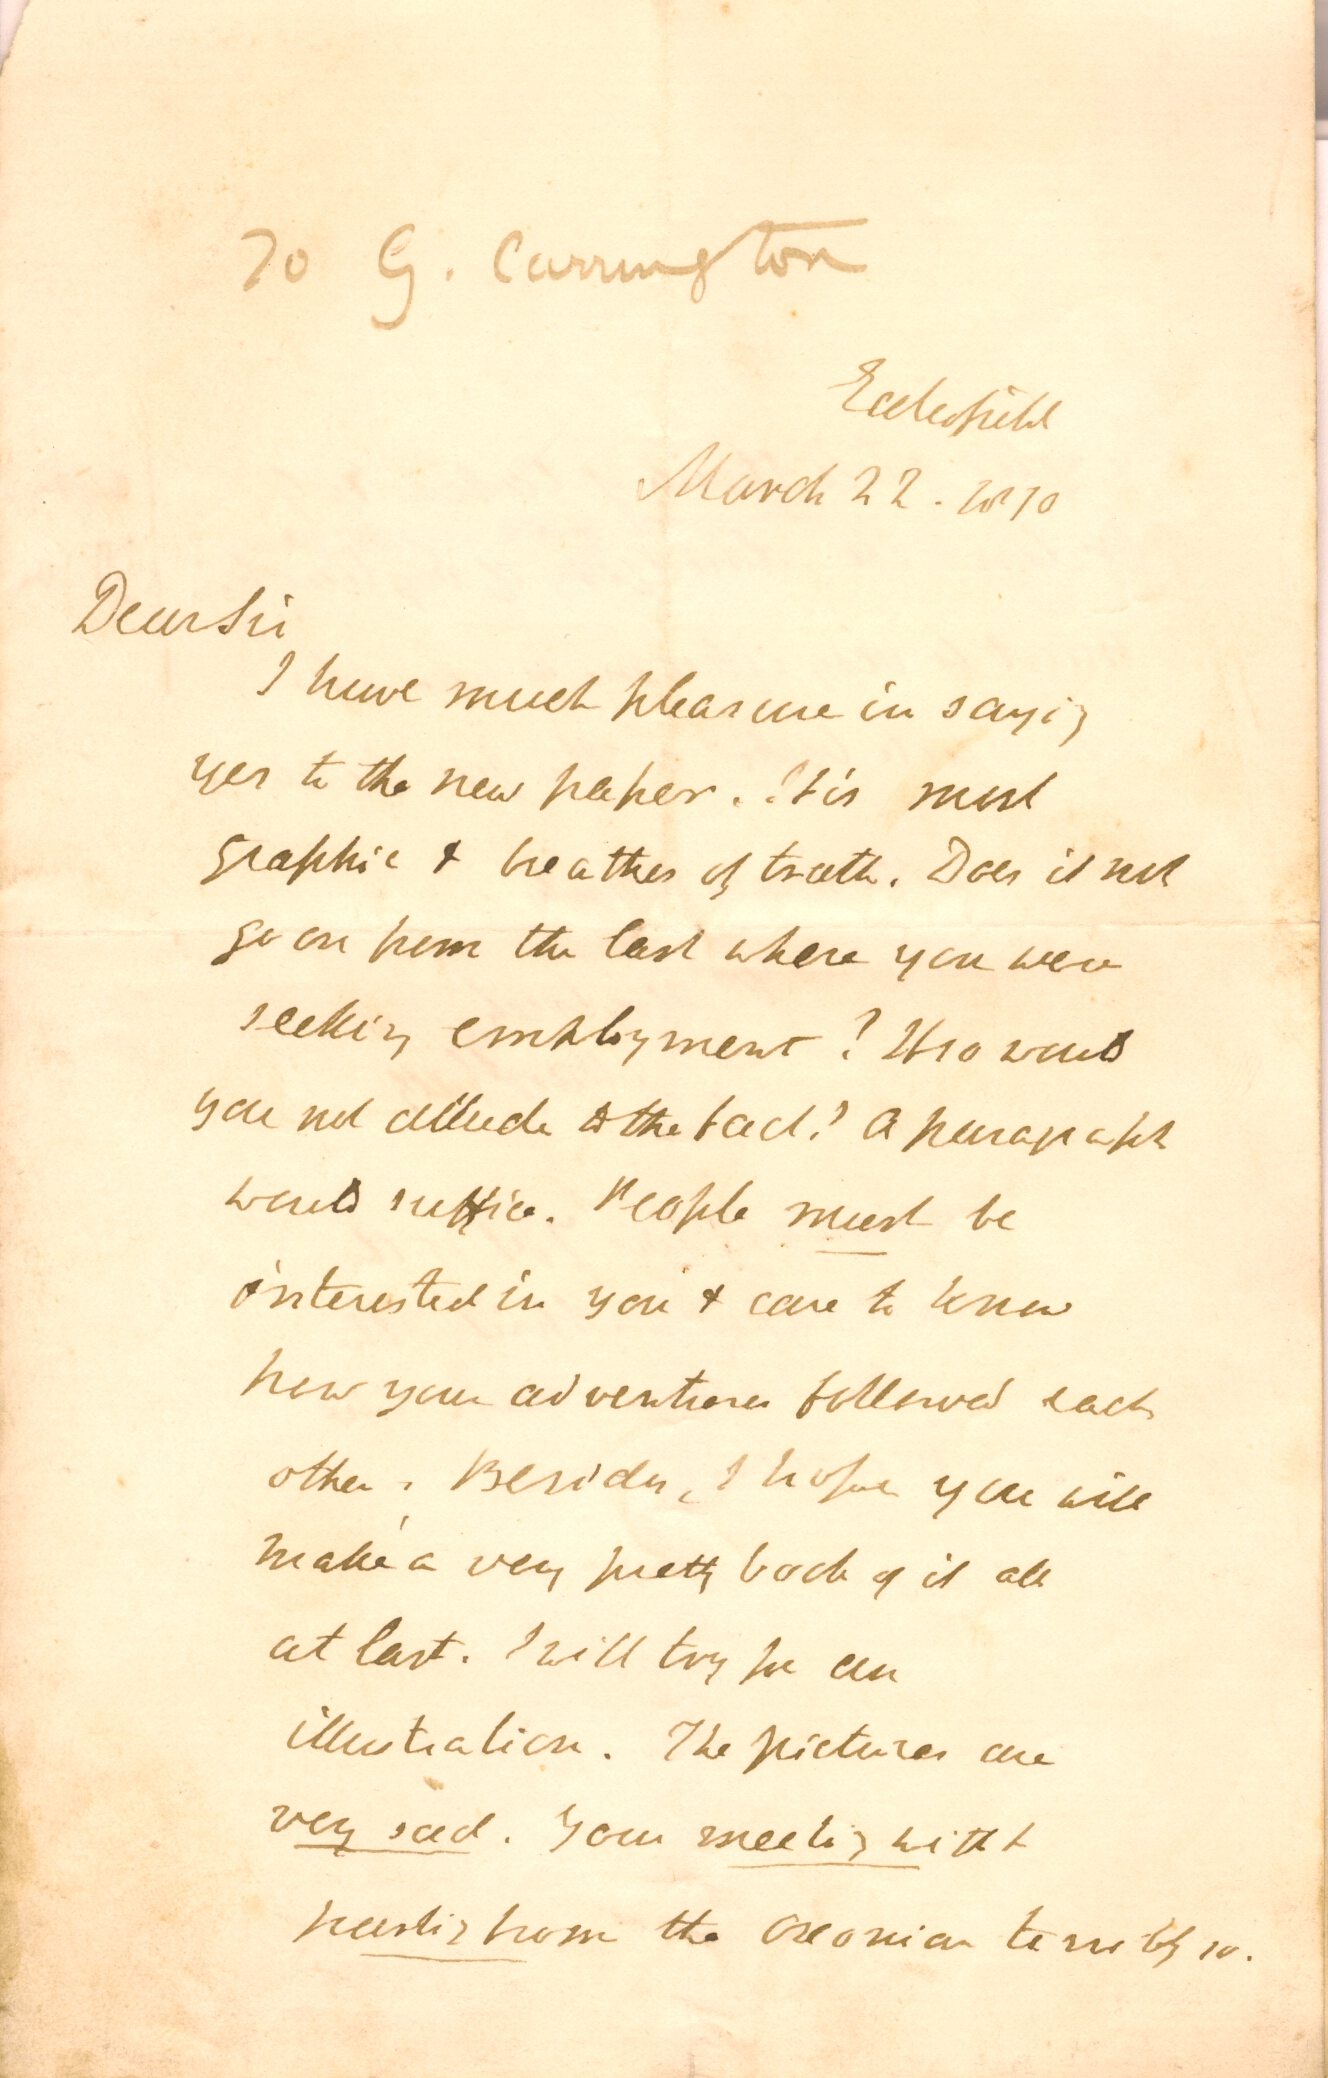 To G. Carrington
Ecclesfield
March 22. 1870
Dear Sir
I have much pleasure in saying
yes to the new paper. It is most
graphic & breathes of truth. Does it not
go on from the last where you were
seeking employment? If so would
you not allude to the fact? A paragraph
would suffice. People must be
interested in you & care to know
how your adventures followed each
other. Besides, I hope you will
make a very pretty book of it all
at last. I will try for an
illustration. The pictures are
very sad. Your meeting with &
parting from the Oxonian terribly so.